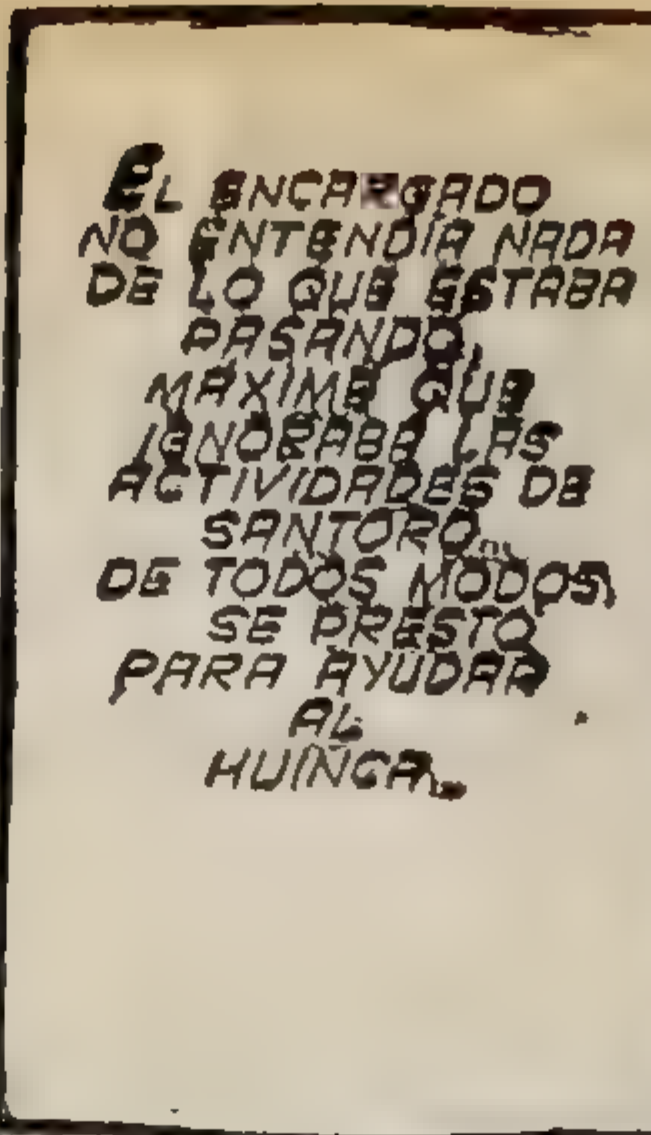 EL ENCARGADO
NO ENTENDÍA NADA
DE LO QUE ESTABA
PASANDO,
MÁXIME QUE
IGNORABA LAS
ACTIVIDADES DE
SANTORO...
DE TODOS MODOS,
SE PRESTO
PARA AYUDAR
AL
HUINCA...